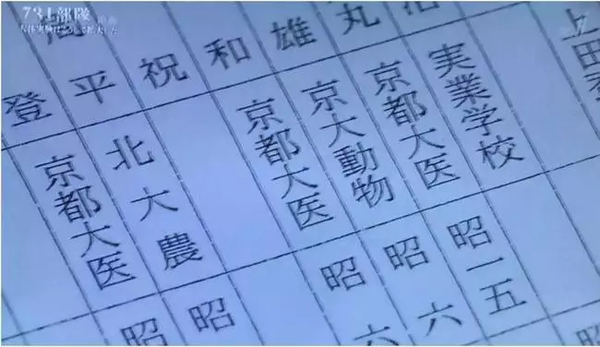 731部隊
上田
実業学校
丸 京都大医 昭一五
雄 京大動物 昭六
和 京都大医 昭六
祝
平 北大農 昭
登 京都大医 昭